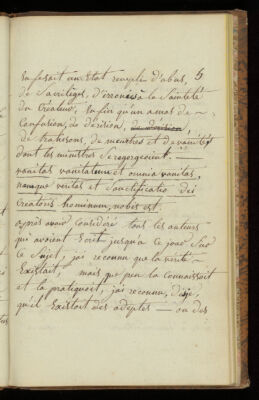 en fesait un Etat remplie d'abus, 5
de Sacrilèges, d'irronées à la Sainteté
du Créateur, Enfin qu'un amas de -
Confusion, de dérision,
de trahisons, de meurtres et de vanités
dont les monstres Se regorgeoient. -
vanitas vanitatum et omnia vanitas,
namque veritas et Sanctificatio dei
Creatoris hominum, nobis est.
après avoir Considéré tous les auteurs -
qui avoient Ecrit jusqu'a ce jour Sur
ce Sujet, j'ai reconnu que la vérité -
Existait, mais que peu la connaissoit
et la pratiquoit, j'ai reconnu, Disje,
qu'il Existoit des adeptes - ou des